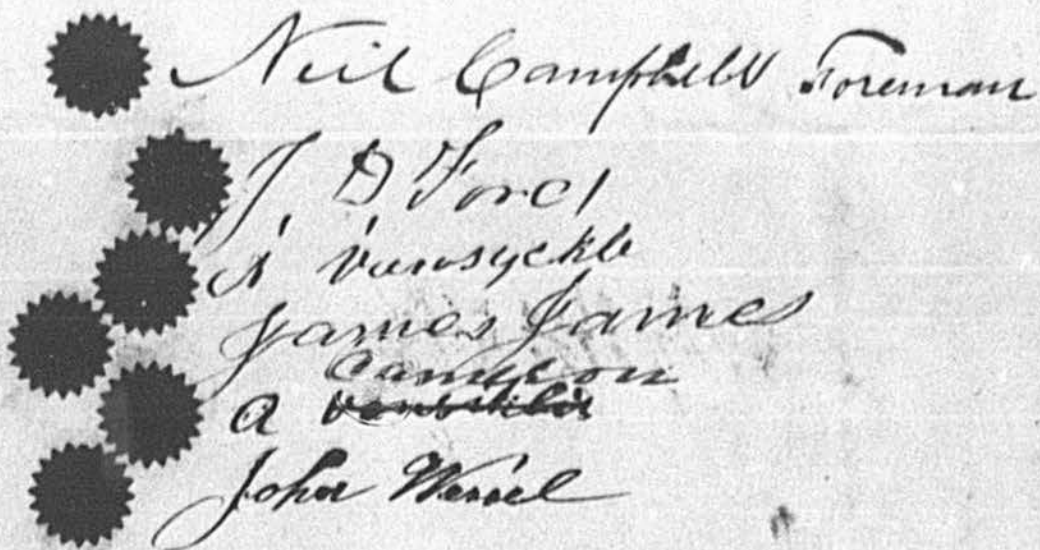 Neil Campbell Foreman
J. D Ford
A Vansyckle
James James
Cameron
A
John